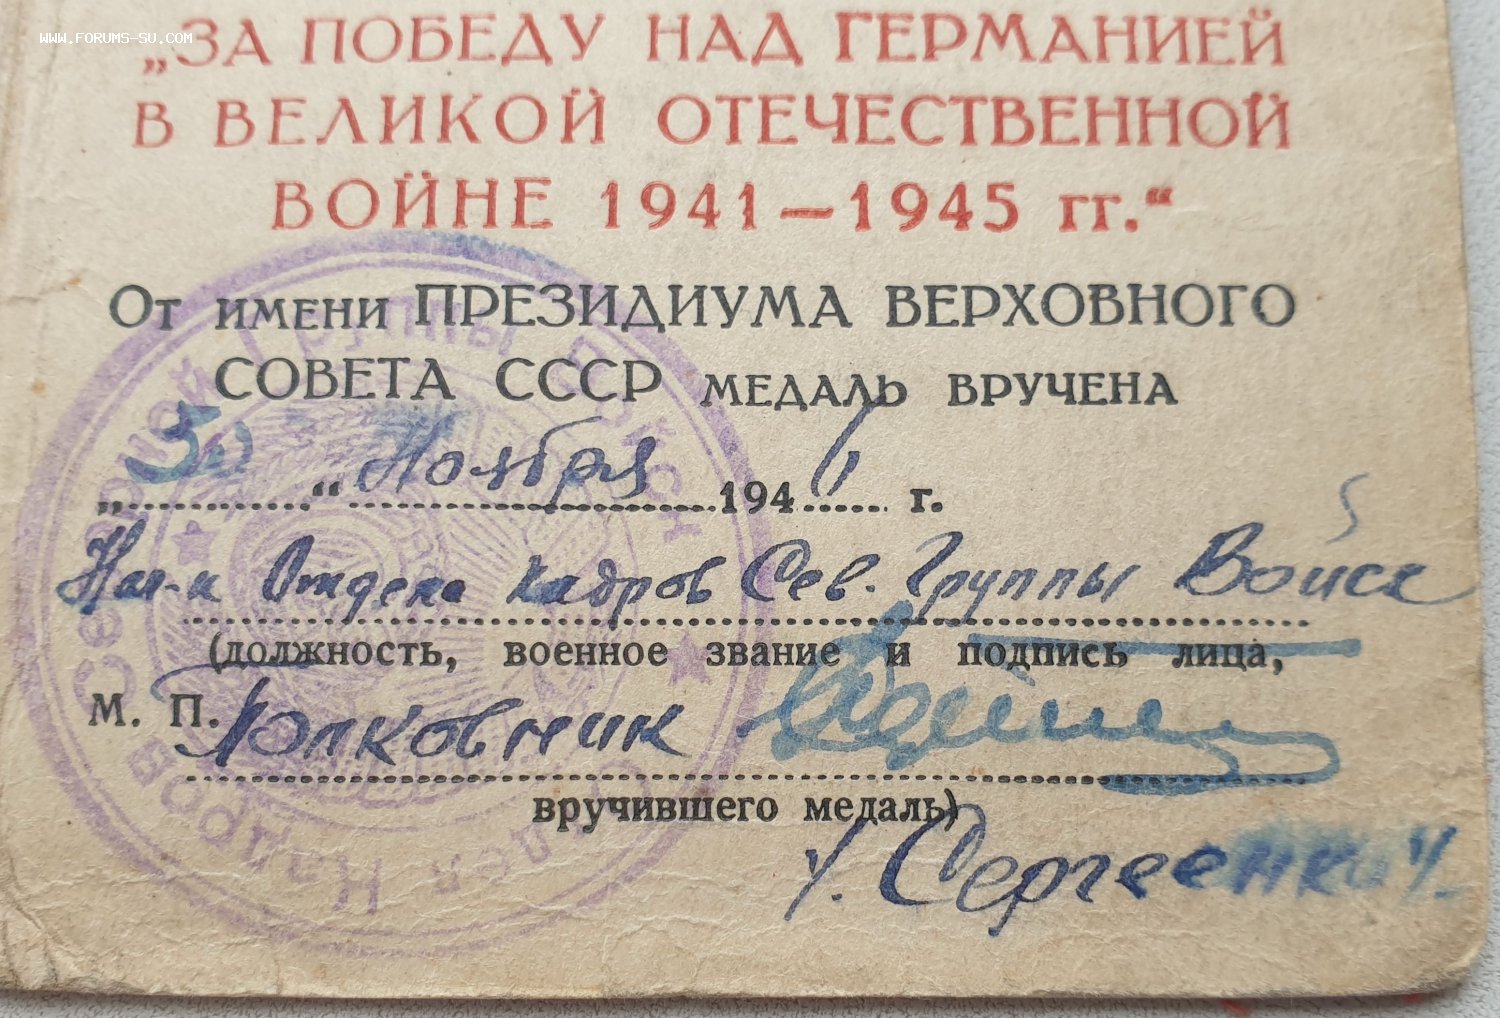 WWW.FORUMS-SU.COM
„ЗА ПОБЕДУ НАД ГЕРМАНИЕЙ
В ВЕЛИКОЙ ОТЕЧЕСТВЕННОЙ
ВОЙНЕ 1941—1945 гг.“
От имени ПРЕЗИДИУМА ВЕРХОВНОГО
СОВЕТА СССР медаль вручена
„ “ Ноября 194 г.
Нач-к Отдела Кадров Сев. Группы Войск
(должность, военное звание и подпись лица,
М. П. Полковник
вручившего медаль)
/Сергеенко/